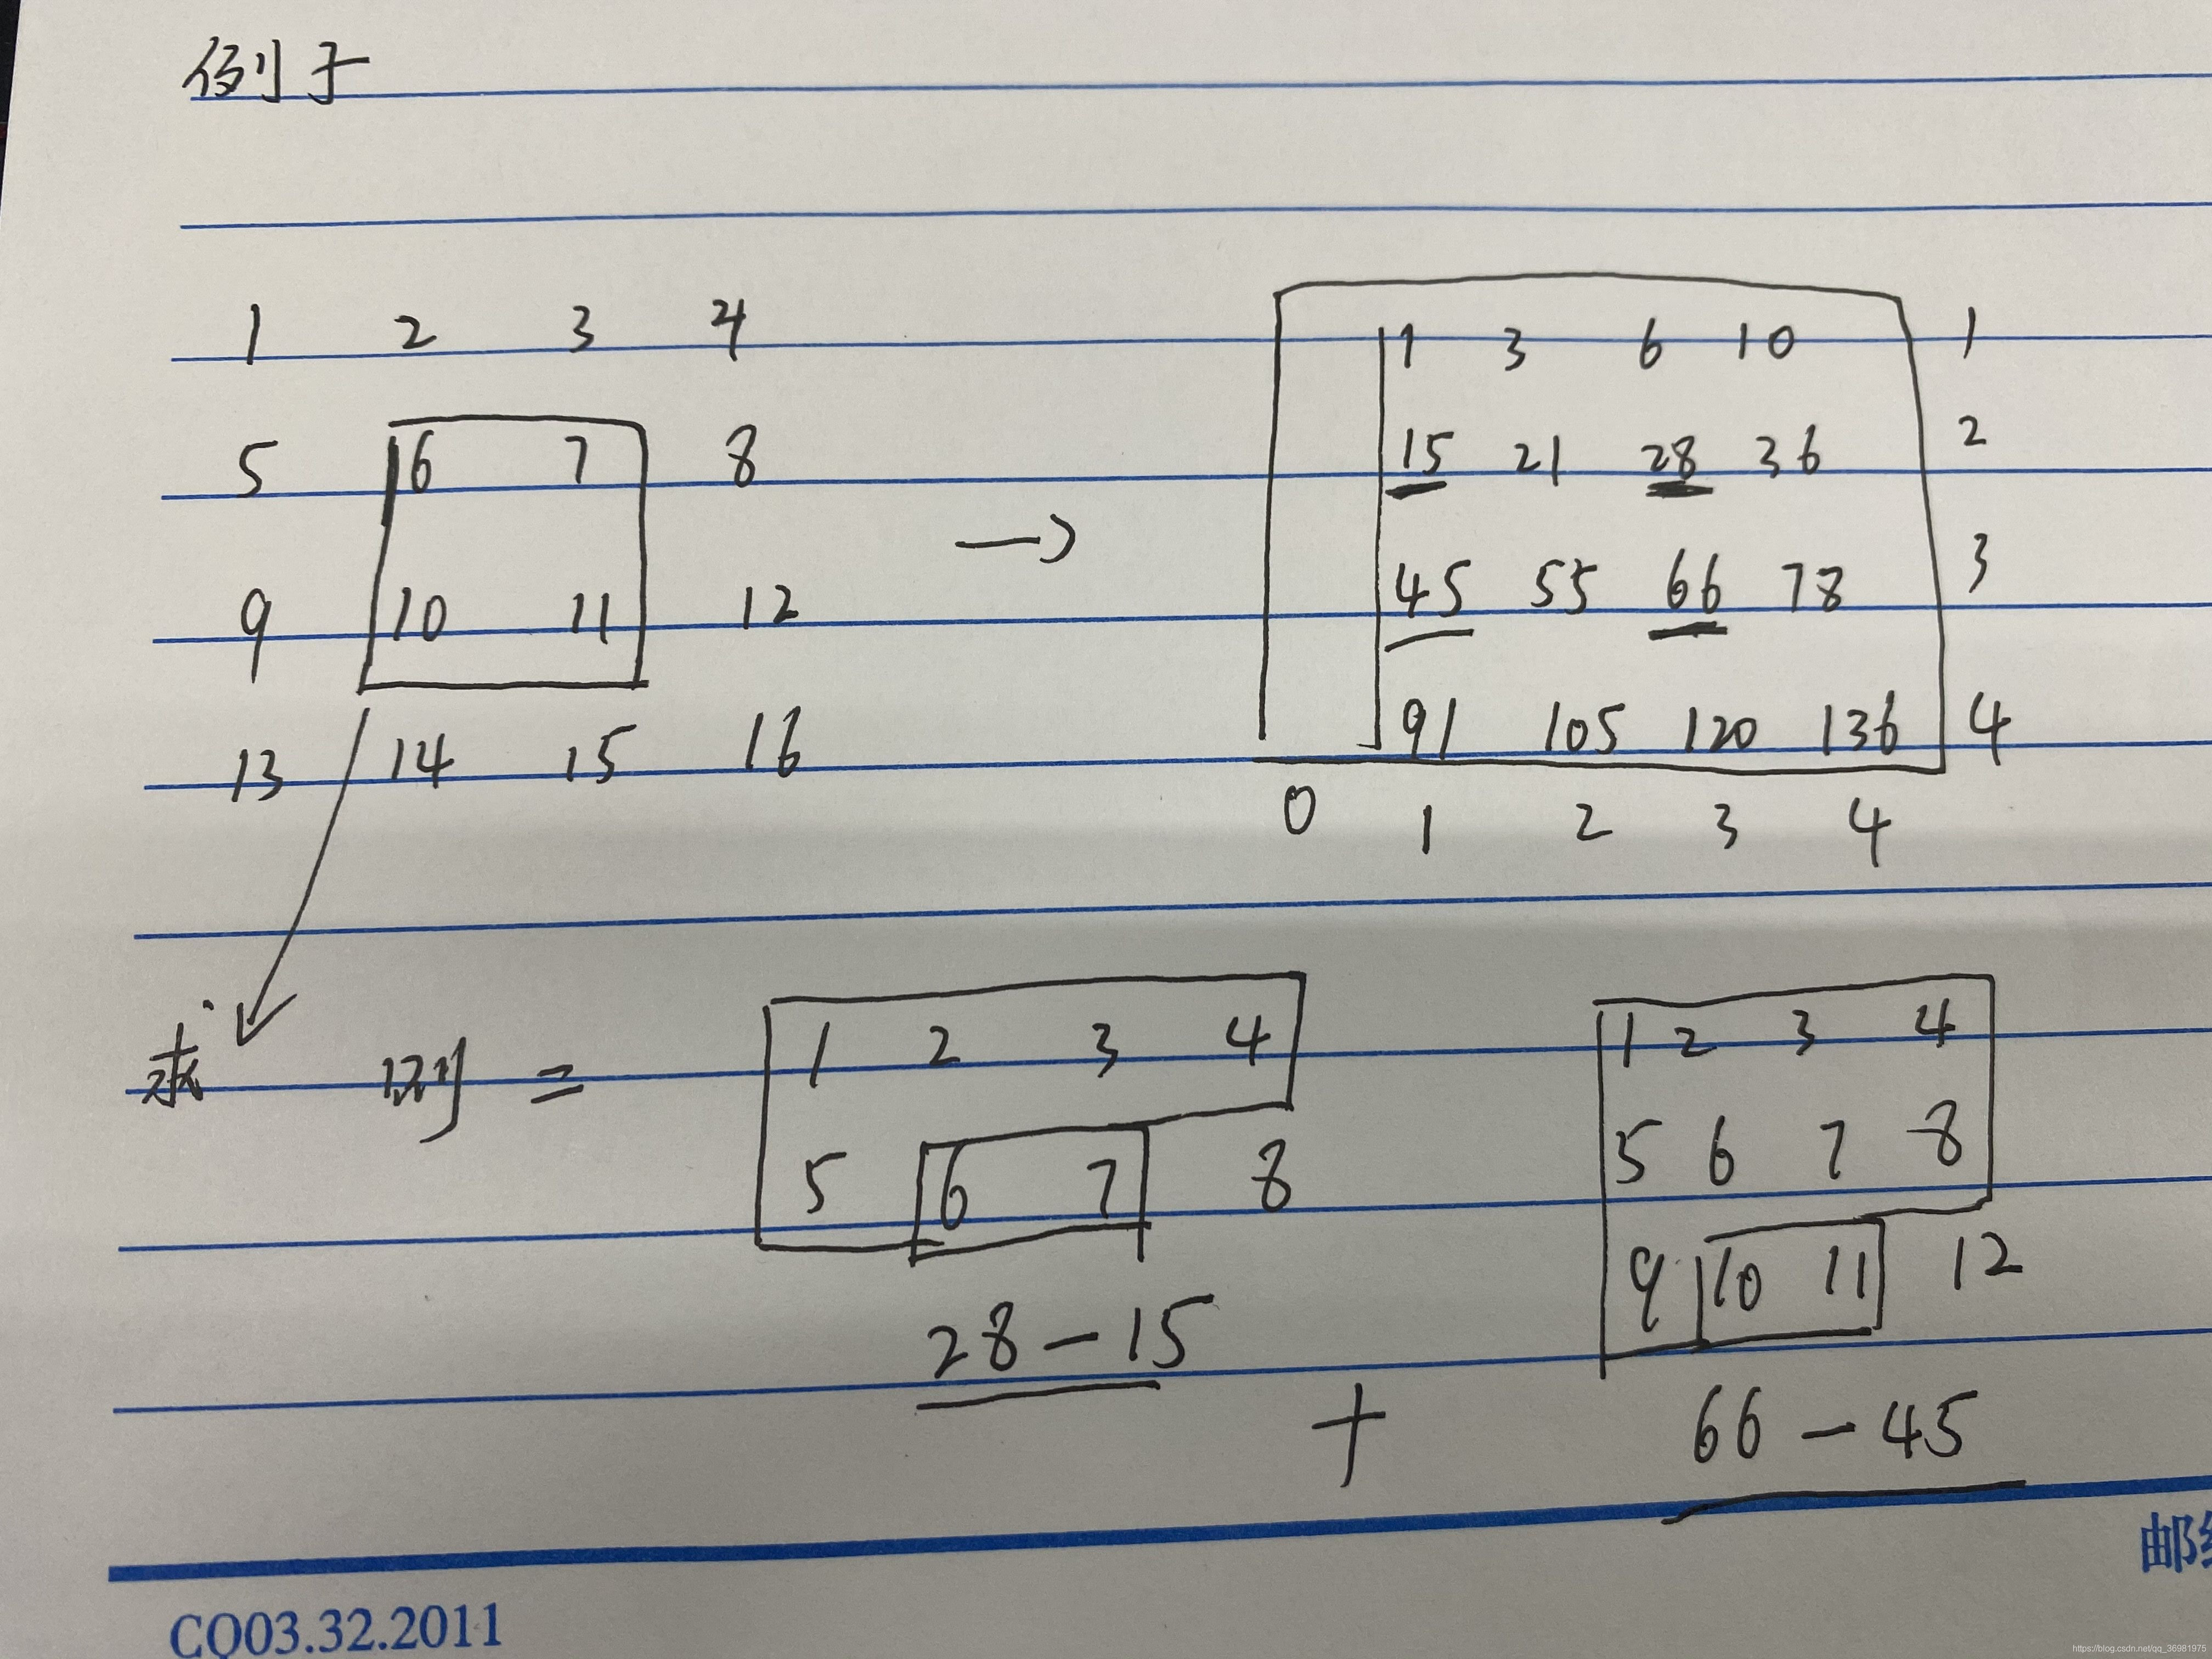 例子
1 2 3 4
5 6 7 8
9 10 11 12
13 14 15 16
→
1 3 6 10 1
15 21 28 36 2
45 55 66 78 3
91 105 120 136 4
0 1 2 3 4
求 =
1 2 3 4
5 6 7 8
28-15
+
1 2 3 4
5 6 7 8
9 10 11 12
66-45
CQ03.32.2011
邮
https://blog.csdn.net/qq_36981975